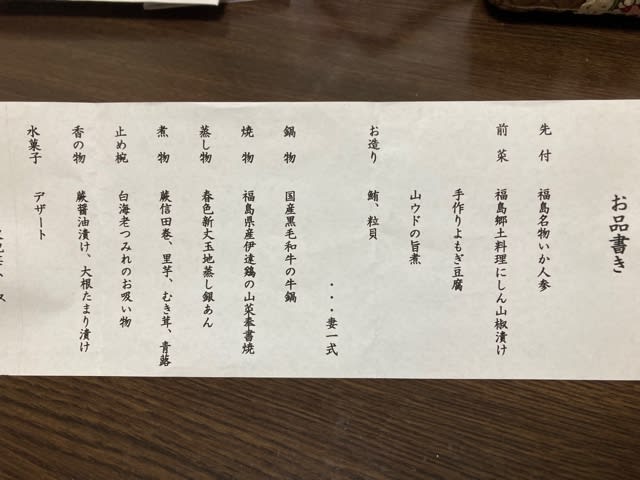 お品書き
先付　福島名物いか人参
前菜　福島郷土料理にしん山椒漬け
手作りよもぎ豆腐
山ウドの旨煮
お造り　鮪、粒貝
・・・妻一式
鍋物　国産黒毛和牛の牛鍋
焼物　福島県産伊達鶏の山菜奉書焼
蒸し物　春色新丈玉地蒸し銀あん
煮物　蕨信田巻、里芋、むき茸、青蕗
止め椀　白海老つみれのお吸い物
香の物　蕨醤油漬け、大根たまり漬け
水菓子　デザート